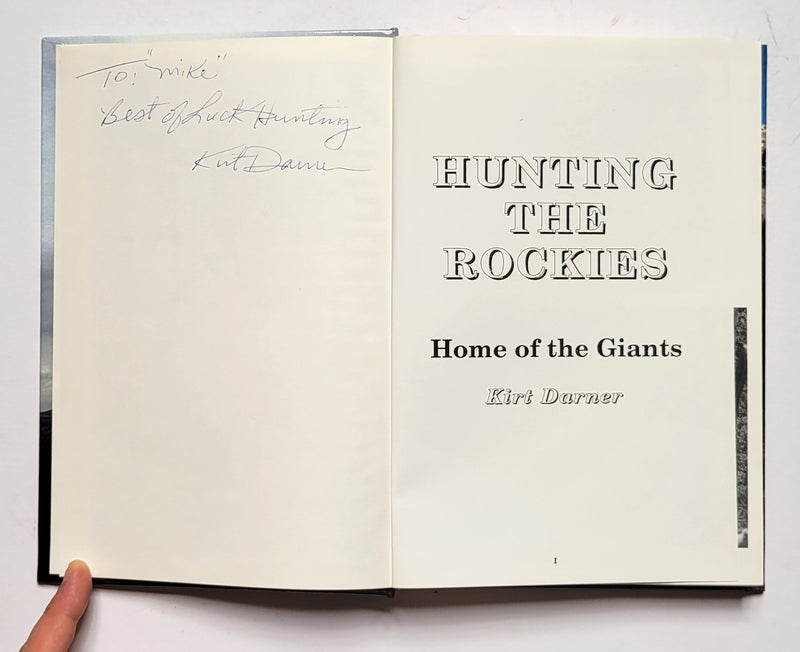 To: "Mike"
Best of Luck Hunting
Kirt Darner
HUNTING
THE
ROCKIES
Home of the Giants
Kirt Darner
1